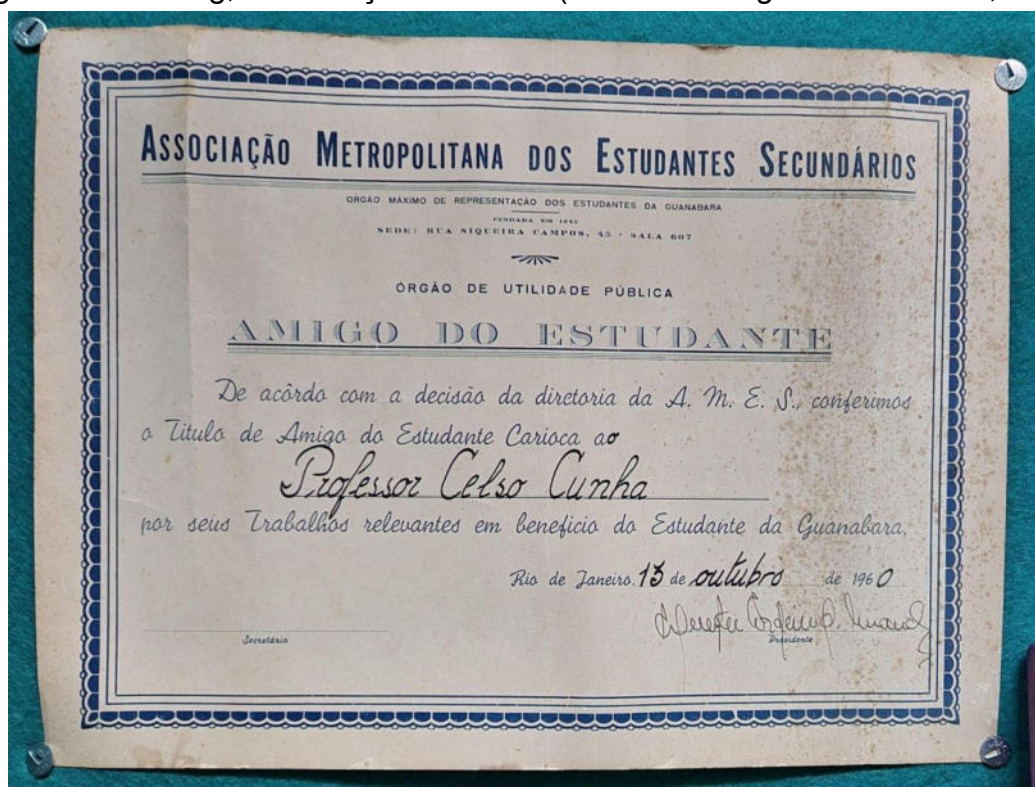 ASSOCIAÇÃO METROPOLITANA DOS ESTUDANTES SECUNDÁRIOS
ORGÃO MÁXIMO DE REPRESENTAÇÃO DOS ESTUDANTES DA GUANABARA
FUNDADA EM
SEDE: RUA SIQUEIRA CAMPOS, 45 - SALA 607
ÓRGÃO DE UTILIDADE PÚBLICA
AMIGO DO ESTUDANTE
De acôrdo com a decisão da diretoria da A. M. E. S., conferimos
o Titulo de Amigo do Estudante Carioca ao
Professor Celso Cunha
por seus Trabalhos relevantes em beneficio do Estudante da Guanabara.
Rio de Janeiro, 13 de outubro de 1960
Secretário
Presidente